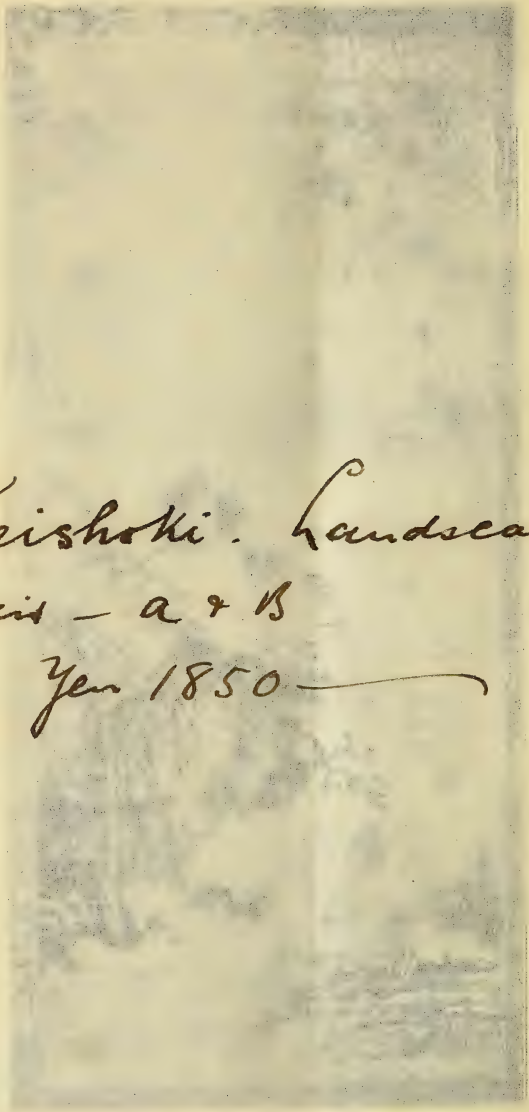 eishoki. Landsca
— a & B
Yen 1850